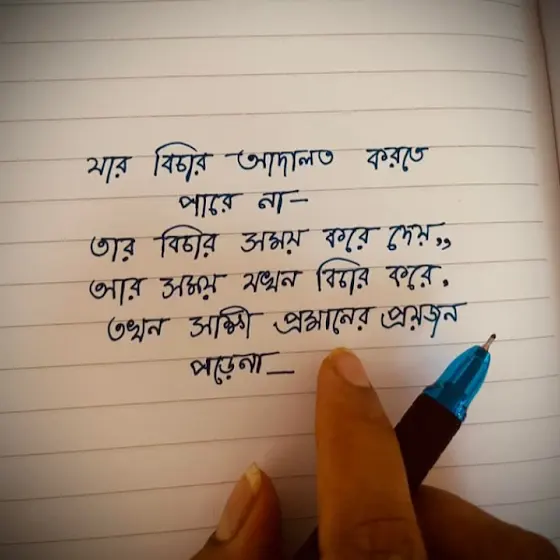 যার বিচার আদালত করতে
পারে না—
তার বিচার সময় করে দেয়,,
আর সময় যখন বিচার করে.
তখন সাক্ষী প্রমানের প্রয়জন
পড়েনা—